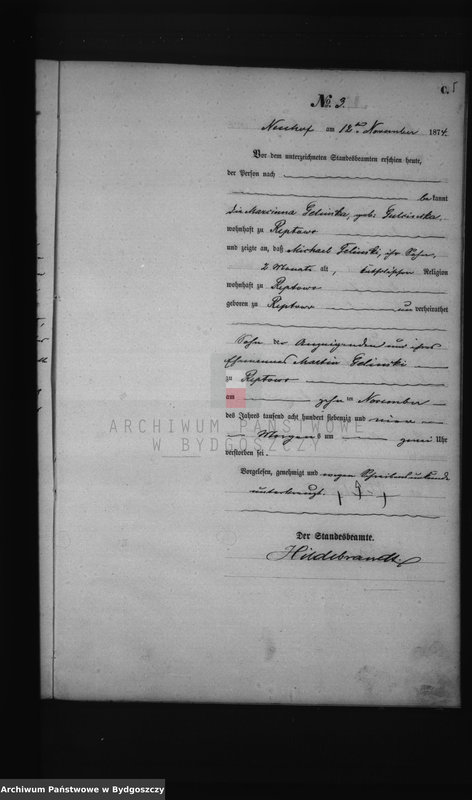 C. 5
No. 3.
Neuhof am 12ten November 1874.
Vor dem unterzeichneten Standesbeamten erschien heute,
der Person nach
bekannt
die Marianna
wohnhaft zu Reptowo
und zeigte an, daß Michael Golinski, ihr Sohn,
2 Monate alt, katholischer Religion
wohnhaft zu Reptowo
geboren zu Reptowo unverheirathet
Sohn der Anzeigenden und ihres
Ehemannes Martin Golinski
zu Reptowo
am zehn ten November
des Jahres tausend acht hundert siebenzig und vier
Morgens um zwei Uhr
verstorben sei.
Vorgelesen, genehmigt und wegen Schreibensunkunde
unterkreuzt. † † †
Der Standesbeamte.
Hildebrandt.
ARCHIWUM PAŃSTWOWE
W BYDGOSZCZY
Archiwum Państwowe w Bydgoszczy